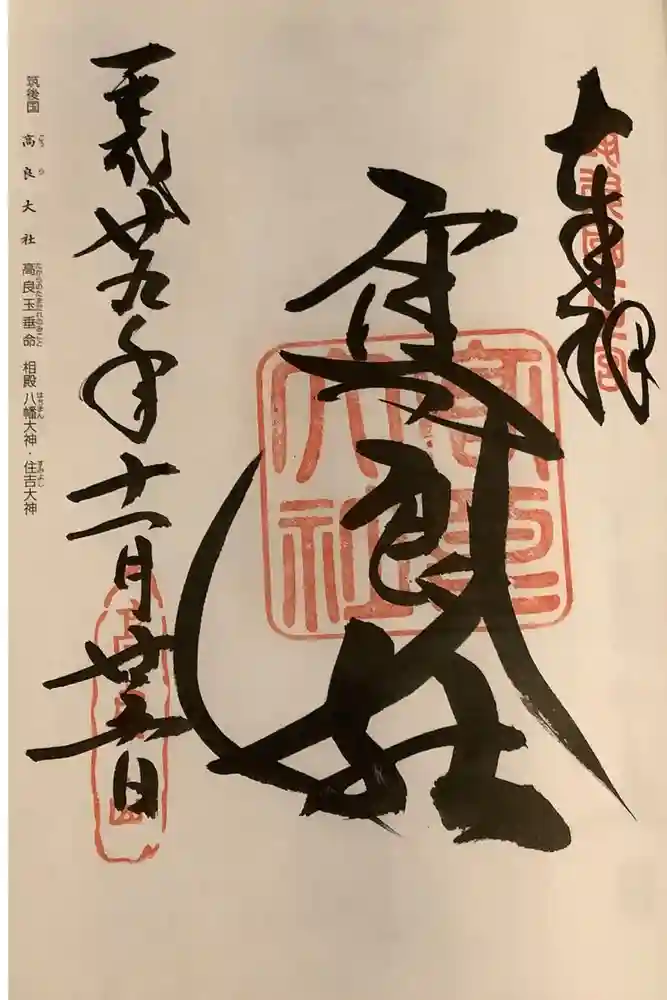 奉拝
高良大社
高良大社
平成廿九年十一月廿五日
筑後国 高良大社 高良玉垂命 相殿 八幡大神・住吉大神